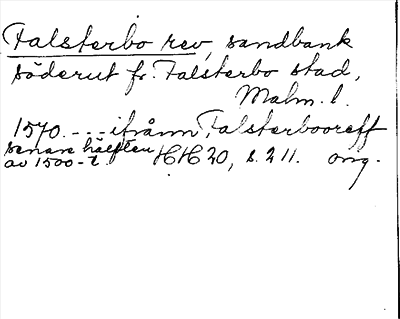 Falsterbo rev, sandbank
söderut fr. Falsterbo stad,
Malm. l.
1570. --- ifrånn Falsterbooreff
senare hälften
av 1500-t. HH 20, s. 211. orig.